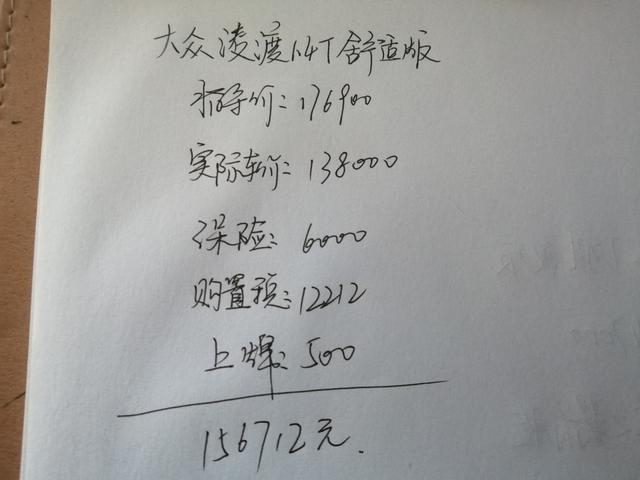 大众凌渡1.4T舒适版
指导价:176900
实际车价:138000
保险:6000
购置税:12212
上牌:500
156712元.